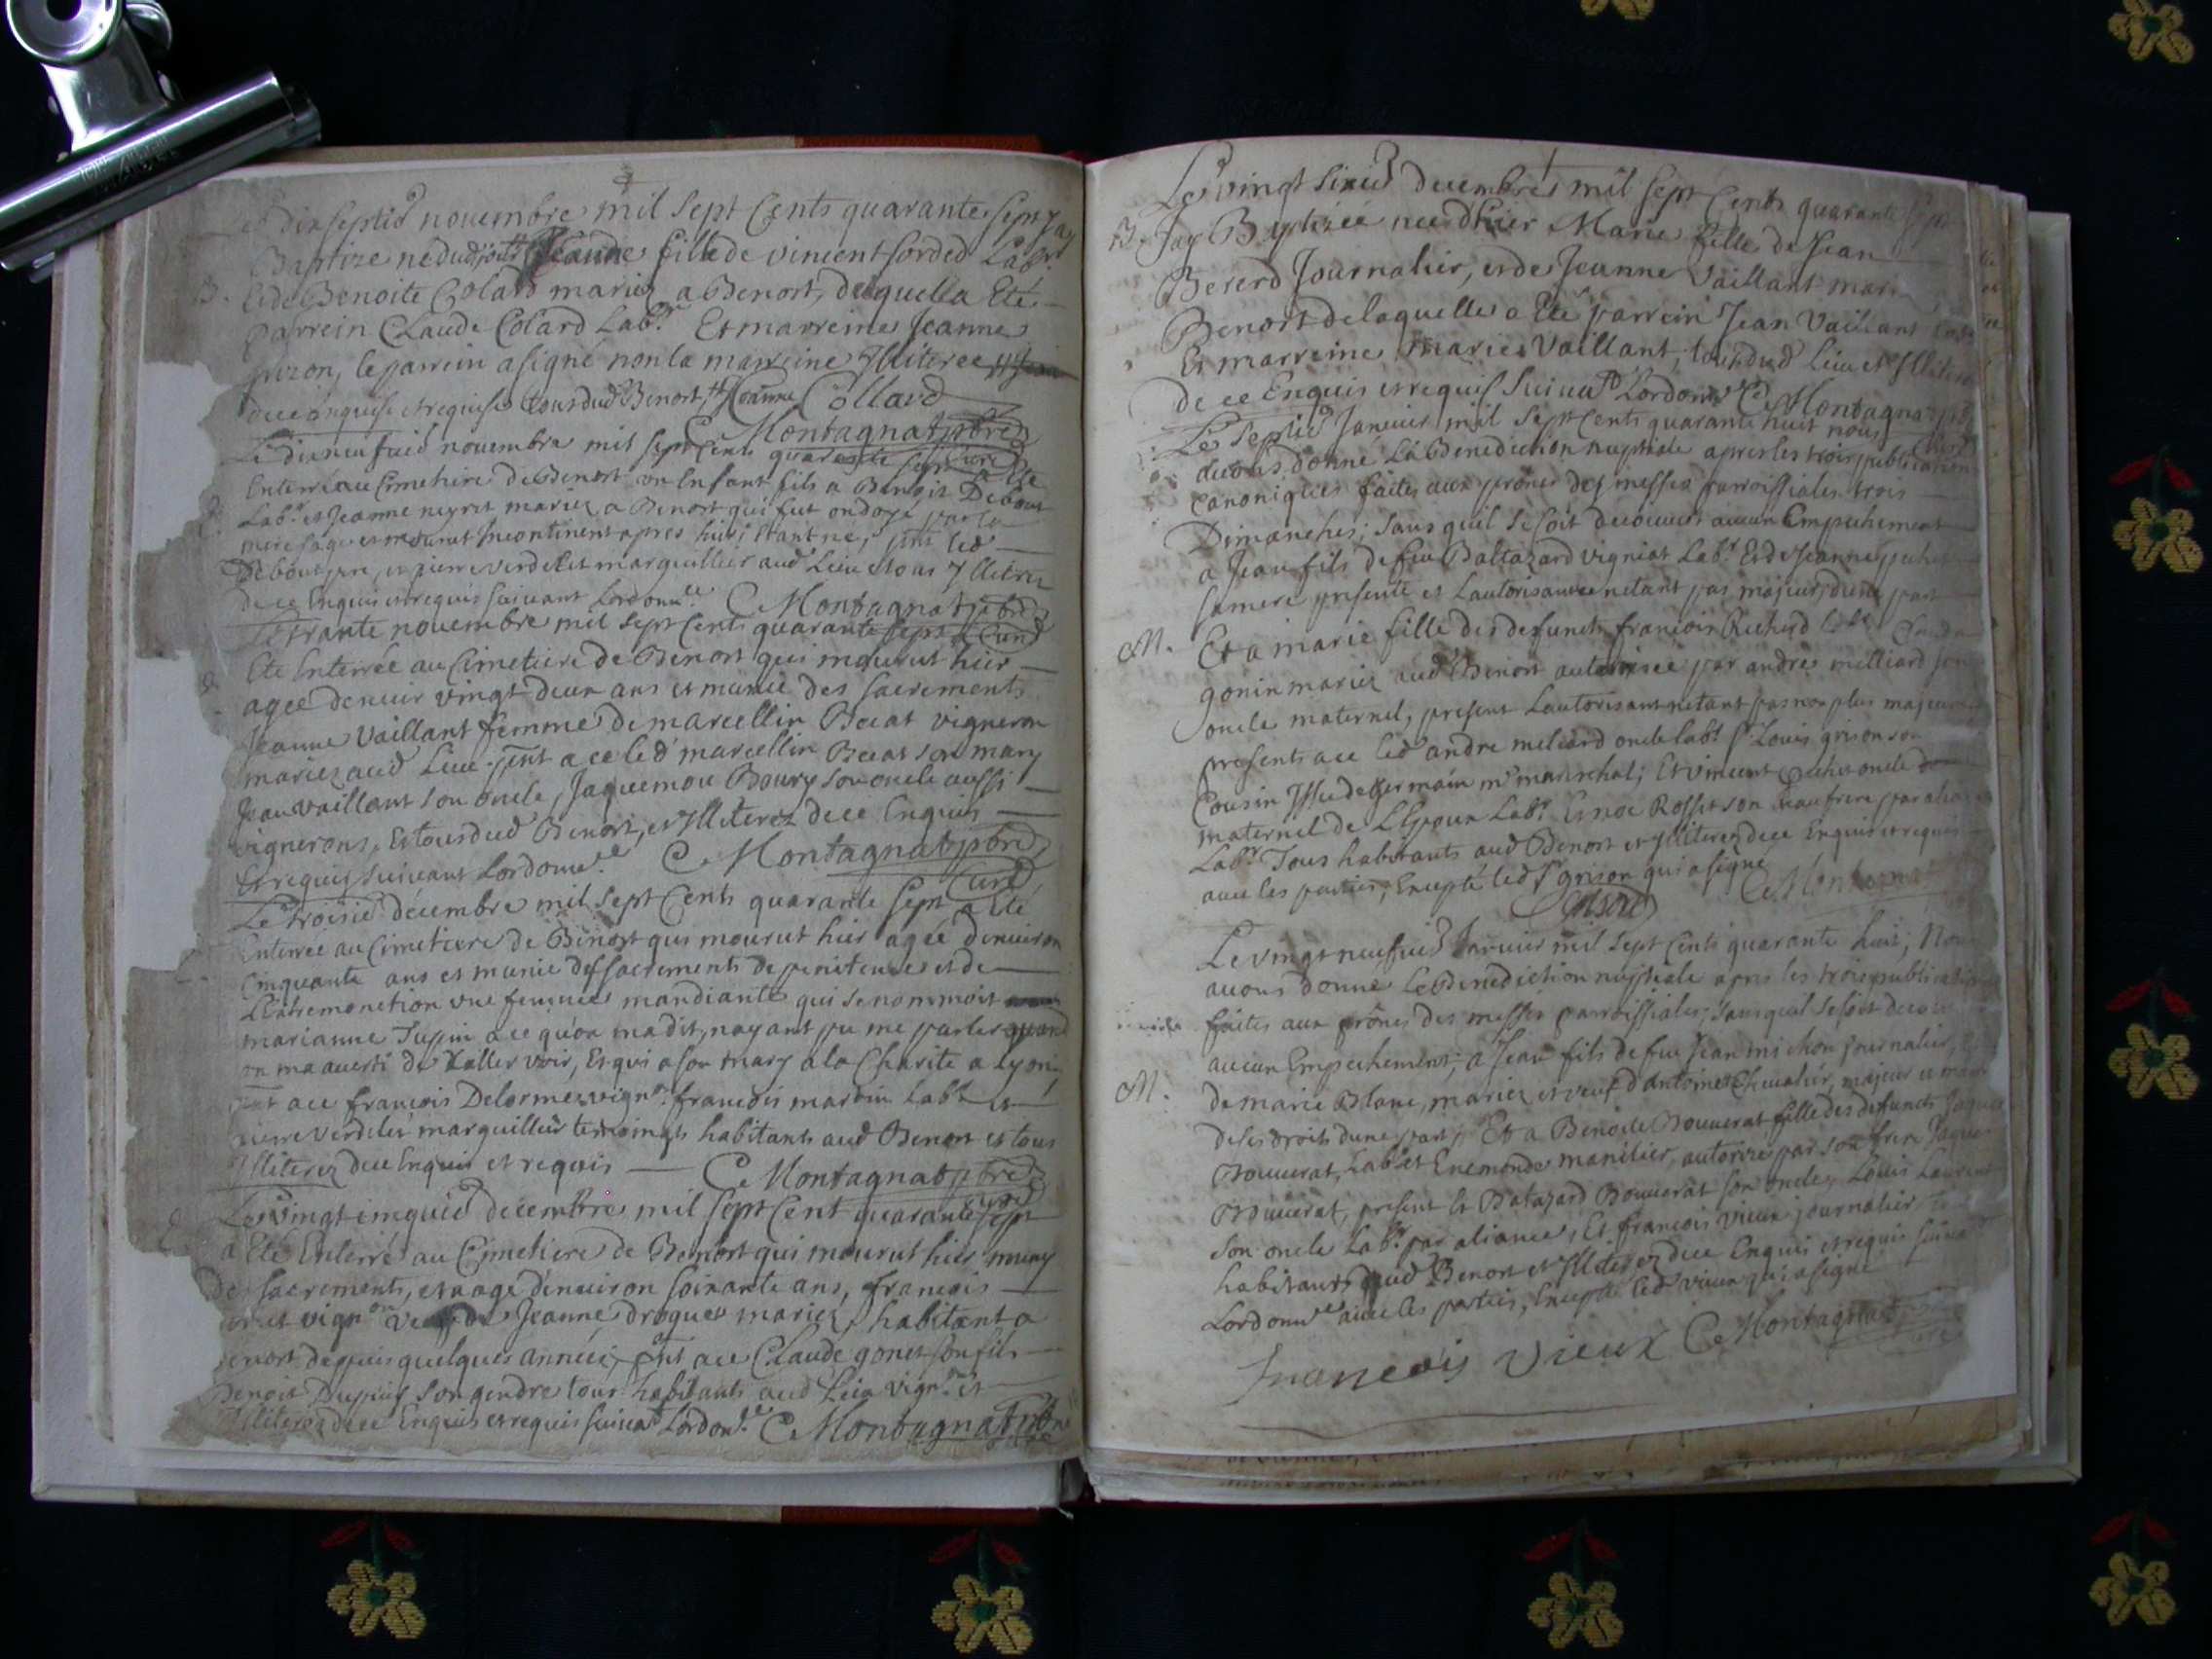 dixseptie novembre mil sept Cents quarante sept Jay
Baptizé né dud jour Jeanne fille de vincent Corded Labr
B. Et de Benoite Colard mariez a Benort, de quelle a Eté
parrein Claude Colard Labr Et marreine Jeanne
guzon, le parrein a signé non la marreine Illiteree
de ce enquise et requise tous dud Benort Collard
C. Montagnat pbre
Curé
Le dixneufvie novembre mil sept Cents quarante sept a Ete
Enterré au Cimetiere de Benort un Enfant fils a Benoit Debout
Labr et Jeanne neyret mariez a Benort qui fut ondoyé par la
mere sage et mourut Incontinent apres hier Etant né, pnt led
Debout pere, et pierre verdelet marguillier aud Lieu et tous Illiterez
de ce Enquis et requis suivant Lordonnce C. Montagnat pbre
Curé
Le trante novembre mil sept Cents quarante sept a
Eté Enterrée au Cimetiere de Benort qui mourut hier
agée denvir vingt deux ans et munie des sacrements
Jeanne Vaillant femme de marcellin Becat vigneron
mariez aud Lieu pnt a ce led marcellin Becat son mary
Jean vaillant son oncle, Jaquemou Boury son oncle aussi
vignerons, Et tous dud Benort, et Illiterez de ce Enquis
Et requis suivant Lordonnce C. Montagnat pbre
Curé
Le troisie décembre mil sept Cents quarante sept a Eté
Enterrée au Cimetiere de Benort qui mourut hier agée denviron
Cinquante ans et munie des sacrements de penitence et de
LExtremonction une femme mandiante qui se nommoit
marianne Jupin a ce qu'on ma dit, nayant pu me parler quand
on ma averti de Laller voir, Et qui a son mary a la Charite a Lyon
pnt a ce francois Delorme vignon francois martin Labr et
pierre verdelet marguillier temoings habitants aud Benort et tous
Illiterez de ce Enquis et requis C. Montagnat pbre
Curé
Le vingt cinquie decembre mil sept Cent quarante sept
a Eté Enterré au Cimetiere de Benort qui mourut hier muny
des sacrements, et agé denviron soixante ans, francois
vignon de Jeanne droguet mariez, habitant a
Benort depuis quelques années, pnt a ce Claude gonet son fils
Benoit Dupuis son gendre tous habitants aud Lieu vignon et
Illiterez de ce Enquis et requis suivat Lordonce C. Montagnat pbre
Le vingt sixie decembre mil sept Cents quarante sept
B. Jay Baptizée née dhier Marie fille de Jean
Bererd Journalier, et de Jeanne Vaillant mariez
Benort de laquelle a Eté parrein Jean Vaillant
Et marreine marie Vaillant, tous dud Lieu et Illiterez
de ce Enquis et requis suivat Lordonnce C. Montagnat pbre
Curé
Le septie Janvier mil sept Cents quarante huit nous
avons donné La Benediction nuptiale apres les trois publications
canoniques faites aux prônes des messes parroissiales trois
Dimanches, sans quil se soit decouvert aucun Empechement
a Jean fils de feu Baltazard vigniat Labr Et de Jeanne pechet
sa mere presente et Lautorisant netant pas majeur, dune part
M. Et a marie fille des defuncts francois Richerd Labr
gonin mariez aud Benort autorisée par andré milliard son
oncle maternel, present Lautorisant netant pas non plus majeure
presents a ce led andre meliard oncle labr sr Louis grison son
Cousin Issu de germain me mareschal; Et vincent pechet oncle
maternel de LEpoux Labr Et noe Rosset son beaufrere par aliance
Labr Tous habitants aud Benort et Illiterez de ce Enquis et requis
avec les parties, Excepté led sr grison qui a signé
Grison C. Montagnat
Le vingt neufvie Janvier mil sept Cents quarante huit; Nous
avons donné la Benediction nuptiale apres les trois publications
faites aux prônes des messes parroissiales, sans quil se soit decouvert
aucun Empechement, a Jean fils de feu Jean michon journalier, Et
M. de marie Blanc, mariez et veuf dantoinette Chevalier, majeur et maitre
de ses droits dune part, Et a Benoite Bouverat fille des defuncts Jaques
Bouverat, Labr et Enemonde manilier, autorizé par son frere Jaques
Bouverat, present Et Batazard Bouverat son oncle, Louis Laurent
son oncle Labr par aliance, Et francois Vieux journalier
habitants aud Benort et Illiterez de ce Enquis et requis suivat
Lordonnce avec les parties, Excepté led vieux qui a signé
Francois Vieux C. Montagnat